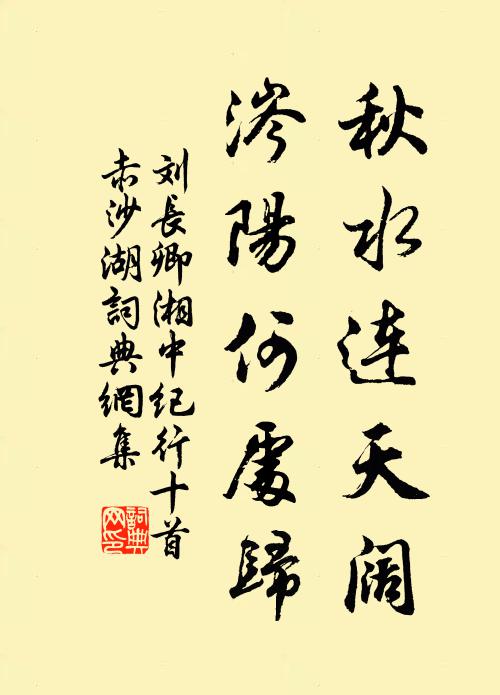 秋水連天闊
涔陽何處歸
刘長卿湘中纪行十首
赤沙湖詞典網集
詞典网印